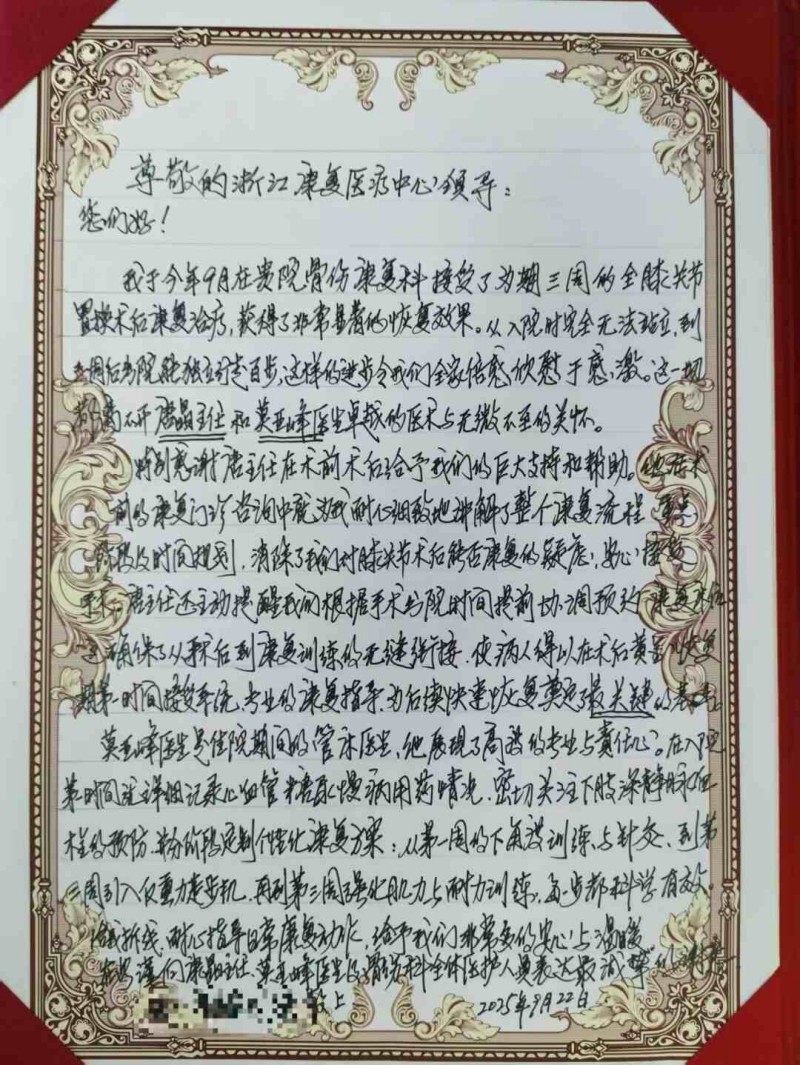 尊敬的浙江康复医疗中心领导：
您们好！
我于今年9月在贵院骨伤康复科接受了为期三周的全膝关节
置换术后康复治疗，获得了非常显著的恢复效果。从入院时完全无法站立，到
三周后出院能独立行走百步，这样的进步令我们全家倍感欣慰于感激。这一切
都离不开唐晶主任和莫亚峰医生卓越的医术与无微不至的关怀。
特别感谢唐主任在术前术后给予我们的巨大支持和帮助。他在术
前的康复门诊咨询中就为我耐心细致地讲解了整个康复流程
阶段及时间规划，消除了我们对膝关节术后能否康复的疑虑，安心接受
手术。唐主任还主动提醒我们根据手术出院时间提前协调预约康复床位
这确保了从手术后到康复训练的无缝衔接，使病人得以在术后黄金恢复
期第一时间接受系统、专业的康复指导，为后续快速恢复奠定了最关键的基础。
莫亚峰医生是住院期间的管床医生，他展现了高超的专业与责任心。在入院
第一时间就详细记录心血管糖尿慢病用药情况，密切关注下肢深静脉血
栓的预防，并分阶段定制个性化康复方案：从第一周的下角度训练与针灸，到第
二周引入反重力走步机，再到第三周强化肌力与耐力训练，每一步都科学有效
给我拆线，耐心指导日常康复动作，给予我们非常多的安心与温暖
谨向唐晶主任、莫亚峰医生及骨伤科全体医护人员表达最诚挚的谢意
敬上 2025年9月22日